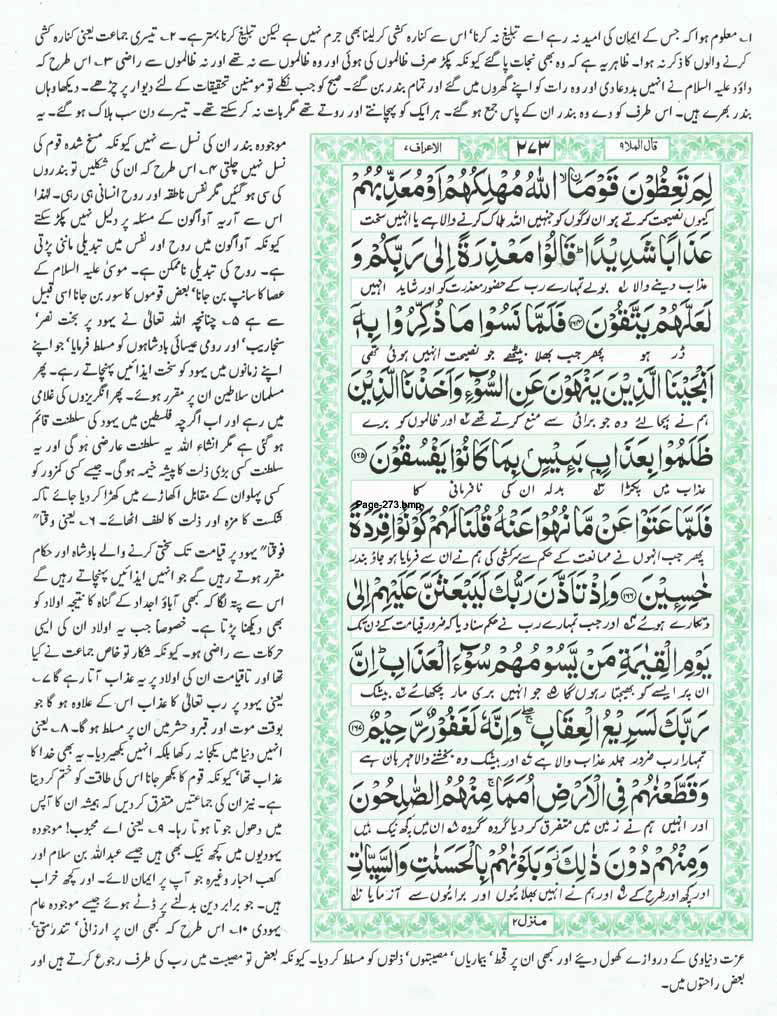 ۱۔ معلوم ہوا کہ جس کے ایمان کی امید نہ رہے اسے تبلیغ نہ کرنا' اس سے کنارہ کشی کر لینا بھی جرم نہیں ہے لیکن تبلیغ کرنا بہتر ہے۔ ۲۔ تیسری جماعت یعنی کنارہ کشی
کرنے والوں کا ذکر نہ ہوا۔ ظاہر یہ ہے کہ وہ بھی نجات پا گئے کیونکہ پکڑ صرف ظالموں کی ہوئی اور وہ ظالموں سے نہ تھے اور نہ ظالموں سے راضی ۳۔ اس طرح کہ
داؤد علیہ السلام نے انہیں بددعا دی اور وہ رات کو اپنے گھروں میں گئے اور تمام بندر بن گئے۔ صبح کو جب نکلے تو مومنین تحقیقات کے لئے دیوار پر چڑھے۔ دیکھا وہاں
بندر بھرے ہیں۔ اس طرف کو دے وہ بندر ان کے پاس جمع ہو گئے۔ ہر ایک کو پہچانتے اور روتے تھے مگر بات نہ کر سکتے تھے۔ تیسرے دن سب ہلاک ہو گئے۔ یہ
موجودہ بندر ان کی نسل سے نہیں کیونکہ مسخ شدہ قوم کی
نسل نہیں چلتی ۴۔ اس طرح کہ ان کی شکلیں تو بندروں
کی سی ہو گئیں مگر نفس ناطقہ اور روح انسانی ہی رہی۔ لہٰذا
اس سے آریہ آواگون کے مسئلہ پر دلیل نہیں پکڑ سکتے
کیونکہ آواگون میں روح اور نفس میں تبدیلی ماننی پڑتی
ہے۔ روح کی تبدیلی ناممکن ہے۔ موسیٰ علیہ السلام کے
عصا کا سانپ بن جانا' بعض قوموں کا سور بن جانا اسی قبیل
سے ہے ۵۔ چنانچہ اللہ تعالیٰ نے یہود پر بخت نصر'
سنجاریب' اور رومی عیسائی بادشاہوں کو مسلط فرمایا' جو اپنے
اپنے زمانوں میں یہود کو سخت ایذائیں پہنچاتے رہے۔
مسلمان سلاطین ان پر مقرر ہوئے۔ پھر انگریزوں کی غلامی
میں رہے اور اب اگرچہ فلسطین میں یہود کی سلطنت قائم
ہو گئی ہے مگر انشاء اللہ یہ سلطنت عارضی ہو گی اور یہ
سلطنت کسی بڑی ذلت کا پیشہ خیمہ ہو گی۔ جیسے کسی کمزور کو
کسی پہلوان کے مقابل اکھاڑے میں کھڑا کر دیا جائے تاکہ
شکست کا مزہ اور ذلت کا لطف اٹھائے۔ ۶۔ یعنی وقتاً
فوقتاً یہود پر قیامت تک سختی کرنے والے بادشاہ اور حکام
مقرر ہوتے رہیں گے جو انہیں ایذائیں پہنچاتے رہیں گے
اس سے پتہ لگا کہ کبھی آباؤ اجداد کے گناہ کا نتیجہ اولاد کو
بھی دیکھنا پڑتا ہے۔ خصوصاً جب یہ اولاد ان کی ایسی
حرکات سے راضی ہو۔ کیونکہ شکار تو خاص جماعت نے کیا
تھا اور تاقیامت ان کی اولاد پر یہ عذاب آتا رہے گا ۷۔
یعنی یہود پر رب تعالیٰ کا عذاب اس کے علاوہ ہو گا جو
بوقت موت اور قبر و حشر میں ان پر مسلط ہو گا۔ ۸۔ یعنی
انہیں دنیا میں یکجا نہ رکھا بلکہ انہیں بکھیر دیا۔ یہ بھی خدا کا
عذاب تھا' کیونکہ قوم کا بکھر جانا اس کی طاقت کو ختم کر دیتا
ہے۔ نیز ان کی جماعتیں متفرق کر دیں کہ ہمیشہ ان کا آپس
میں دھول جوتا ہوتا رہا۔ ۹۔ یعنی اے محبوب! موجودہ
یہودیوں میں کچھ نیک بھی ہیں جیسے عبداللہ بن سلام اور
کعب احبار وغیرہ جو آپ پر ایمان لائے۔ اور کچھ خراب
ہیں۔ جو برابر دین بدلنے پر ڈٹے ہوئے جیسے موجودہ عام
یہودی ۱۰۔ اس طرح کہ کبھی ان پر ارزانی' تندرستی'
قال الملا ۹ ۲۷۳ الاعراف ۷
لِمَ تَعِظُوْنَ قَوْمَا ۙ اللّٰهُ مُهْلِكُهُمْ اَوْ مُعَذِّبُهُمْ
کیوں نصیحت کرتے ہو ان لوگوں کو جنہیں اللہ ہلاک کرنے والا ہے یا انہیں سخت
عَذَابًا شَدِيْدًا ؕ قَالُوْا مَعْذِرَةً اِلٰى رَبِّكُمْ وَ
عذاب دینے والا لہ بولے تمہارے رب کے حضور معذرت کو اور شاید انہیں
لَعَلَّهُمْ يَتَّقُوْنَ ۝۱۶۴ فَلَمَّا نَسُوْا مَا ذُكِّرُوْا بِهٖۤ
ڈر ہو پھر جب بھلا بیٹھے جو نصیحت انہیں ہوئی تھی
اَنْجَيْنَا الَّذِيْنَ يَنْهَوْنَ عَنِ السُّوْٓءِ وَاَخَذْنَا الَّذِيْنَ
ہم نے بچا لئے وہ جو برائی سے منع کرتے تھے ۲ اور ظالموں کو برے
ظَلَمُوْا بِعَذَابٍۭ بَـِٔيْسٍۭ بِمَا كَانُوْا يَفْسُقُوْنَ ۝۱۶۵
عذاب میں پکڑا ۳ بدلہ ان کی نافرمانی کا
Page-273.bmp
فَلَمَّا عَتَوْا عَنْ مَّا نُهُوْا عَنْهُ قُلْنَا لَهُمْ كُوْنُوْا قِرَدَةً
پھر جب انہوں نے ممانعت کے حکم سے سرکشی کی ہم نے ان سے فرمایا ہو جاؤ بندر
خٰسِـِٕيْنَ ۝۱۶۶ وَاِذْ تَاَذَّنَ رَبُّكَ لَيَبْعَثَنَّ عَلَيْهِمْ اِلٰى
دھتکارے ہوئے ۴ اور جب تمہارے رب نے حکم سنا دیا کہ ضرور قیامت کے دن تک
يَوْمِ الْقِيٰمَةِ مَنْ يَّسُوْمُهُمْ سُوْٓءَ الْعَذَابِ ؕ اِنَّ
ان پر ایسے کو بھیجتا رہوں گا ۵ جو انہیں بری مار چکھائے ۶ بیشک
رَبَّكَ لَسَرِيْعُ الْعِقَابِ ۖۚ وَاِنَّهٗ لَغَفُوْرٌ رَّحِيْمٌ ۝۱۶۷
تمہارا رب ضرور جلد عذاب والا ہے ۷ اور بیشک وہ بخشنے والا مہربان ہے
وَقَطَّعْنٰهُمْ فِى الْاَرْضِ اُمَمًا ۚ مِنْهُمُ الصّٰلِحُوْنَ
اور انہیں ہم نے زمین میں متفرق کر دیا گروہ گروہ ۸ ان میں کچھ نیک ہیں
وَمِنْهُمْ دُوْنَ ذٰلِكَ ۫ وَبَلَوْنٰهُمْ بِالْحَسَنٰتِ وَالسَّيِّاٰتِ
اور کچھ اور طرح کے ۹ اور ہم نے انہیں بھلائیوں اور برائیوں سے آزمایا ۱۰
منزل ۲
عزت دنیاوی کے دروازے کھول دیئے اور کبھی ان پر قحط' بیماریاں' مصیبتوں' ذلتوں کو مسلط کر دیا۔ کیونکہ بعض تو مصیبت میں رب کی طرف رجوع کرتے ہیں اور
بعض راحتوں میں۔